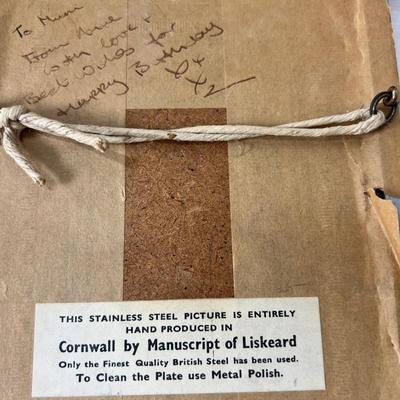 To Mum
From
with love &
Best Wishes for
Happy Birthday
THIS STAINLESS STEEL PICTURE IS ENTIRELY
HAND PRODUCED IN
Cornwall by Manuscript of Liskeard
Only the Finest Quality British Steel has been used.
To Clean the Plate use Metal Polish.